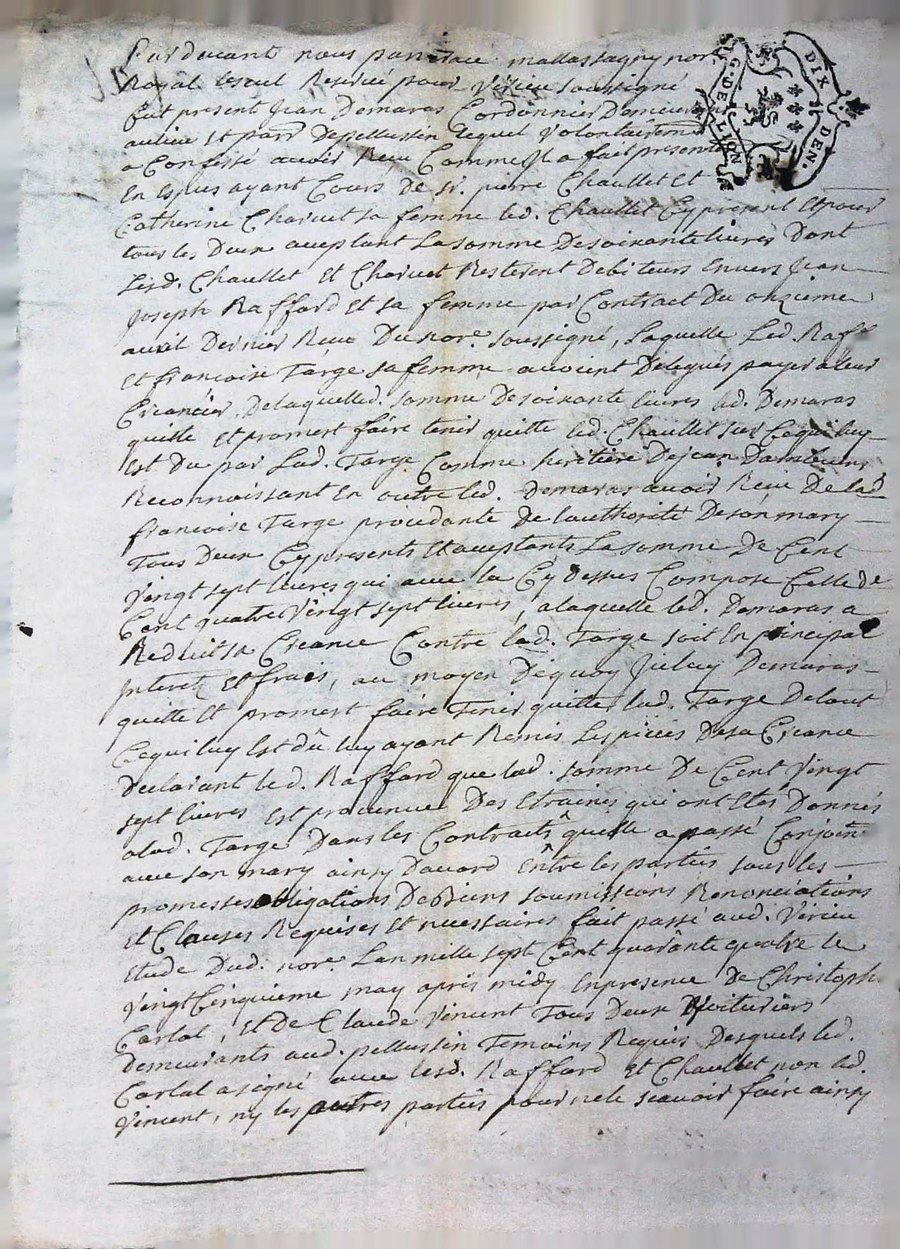 Pardevant nous pancrace mallassagny nore.
Royal Reservé pour Virieu soussigné
fut present Jean Demaras Cordonnier Demeurant
au lieu et parr. de pellussin Lequel volontairement
a Confessé avoir Reçu Comme Il a fait presentem
En Espues ayant Cours de sr. pierre Chaullet Et
Catherine Charuet sa femme led. Chaullet Cy present Et pour
tous les Deux aceptant La somme De soixante livres Dont
Lesd. Chaullet Et Charuet Resterent Debiteurs Envers Jean
Joseph Raffard Et sa femme par Contract Du onzieme
avril Dernier Reçu Du nore. soussigné, Laquelle Led. Raff
Et francoise Targe sa femme avoient Delegués payer a leur
Creancier, De laquelle d. somme De soixante livres led. Demaras
quitte Et promest faire tenir quitte led. Chaullet sur Cequi luy
Est Du par Lad. Targe Comme heritiere De Jean
Reconnoissant En outre led. Demaras avoir Reçu De lad
francoise Targe procedante De l'authorité De son mary
Tous Deux Cy presents Et aceptants La somme De Cent
Vingt sept livres qui avec la Cy Dessus Compose Celle de
Cent quatre Vingt sept livres, a laquelle led. Demaras a
Reduit sa Creance Contre lad. Targe soit En principal
Interets Et frais, au moyen Dequoy Juluy Demaras
quitte Et promest faire Tenir quitte lad. Targe De tout
Cequi luy Est dû luy ayant Remis Les pieces De sa Creance
Declarant led. Raffard que lad. somme De Cent Vingt
sept livres Est provenue Des Etraines qui ont Etes Donnés
a lad. Targe Dans les Contracts quelle a passé Conjoin
avec son mary ainsy Davard Entre les parties sous les
promesses obligations De Biens soumissions Renonciations
Et Clauses Requises Et necessaires fait passé aud. Virieu
Etude Dud. nore. Lan mille sept Cent quarante quatre le
Vingt Cinquieme may apres midy En presence De Christoph
Carlat, Et De Claude Vincent Tous Deux Voituriers
Demeurants aud. pellussin Temoins Requis Desquels led.
Carlat a signé avec lesd. Raffard Et Chaullet non led.
Vincent, ny les autres parties pour ne le scavoir faire ainsy
G. DE LION
DIX DEN.